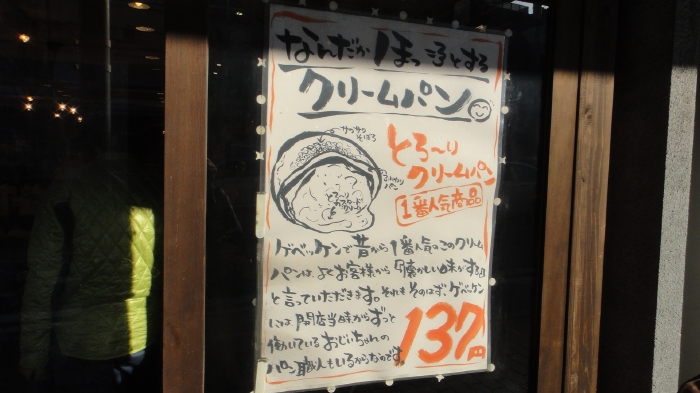 なんだかほっこりとする
クリームパン。
サクサク
そぼろ
とろ〜り
クリームパン
1番人気商品
とろ〜り
カスタード
クリーム
パン
ゲベッケンで昔から1番人気のこのクリーム
パンは、よくお客様から「懐かしい味がする」
と言っていただきます。それもそのはず、ゲベッケン
には、開店当時からずっと
働いているおじいちゃんの
パン職人もいるからなのです。
137円